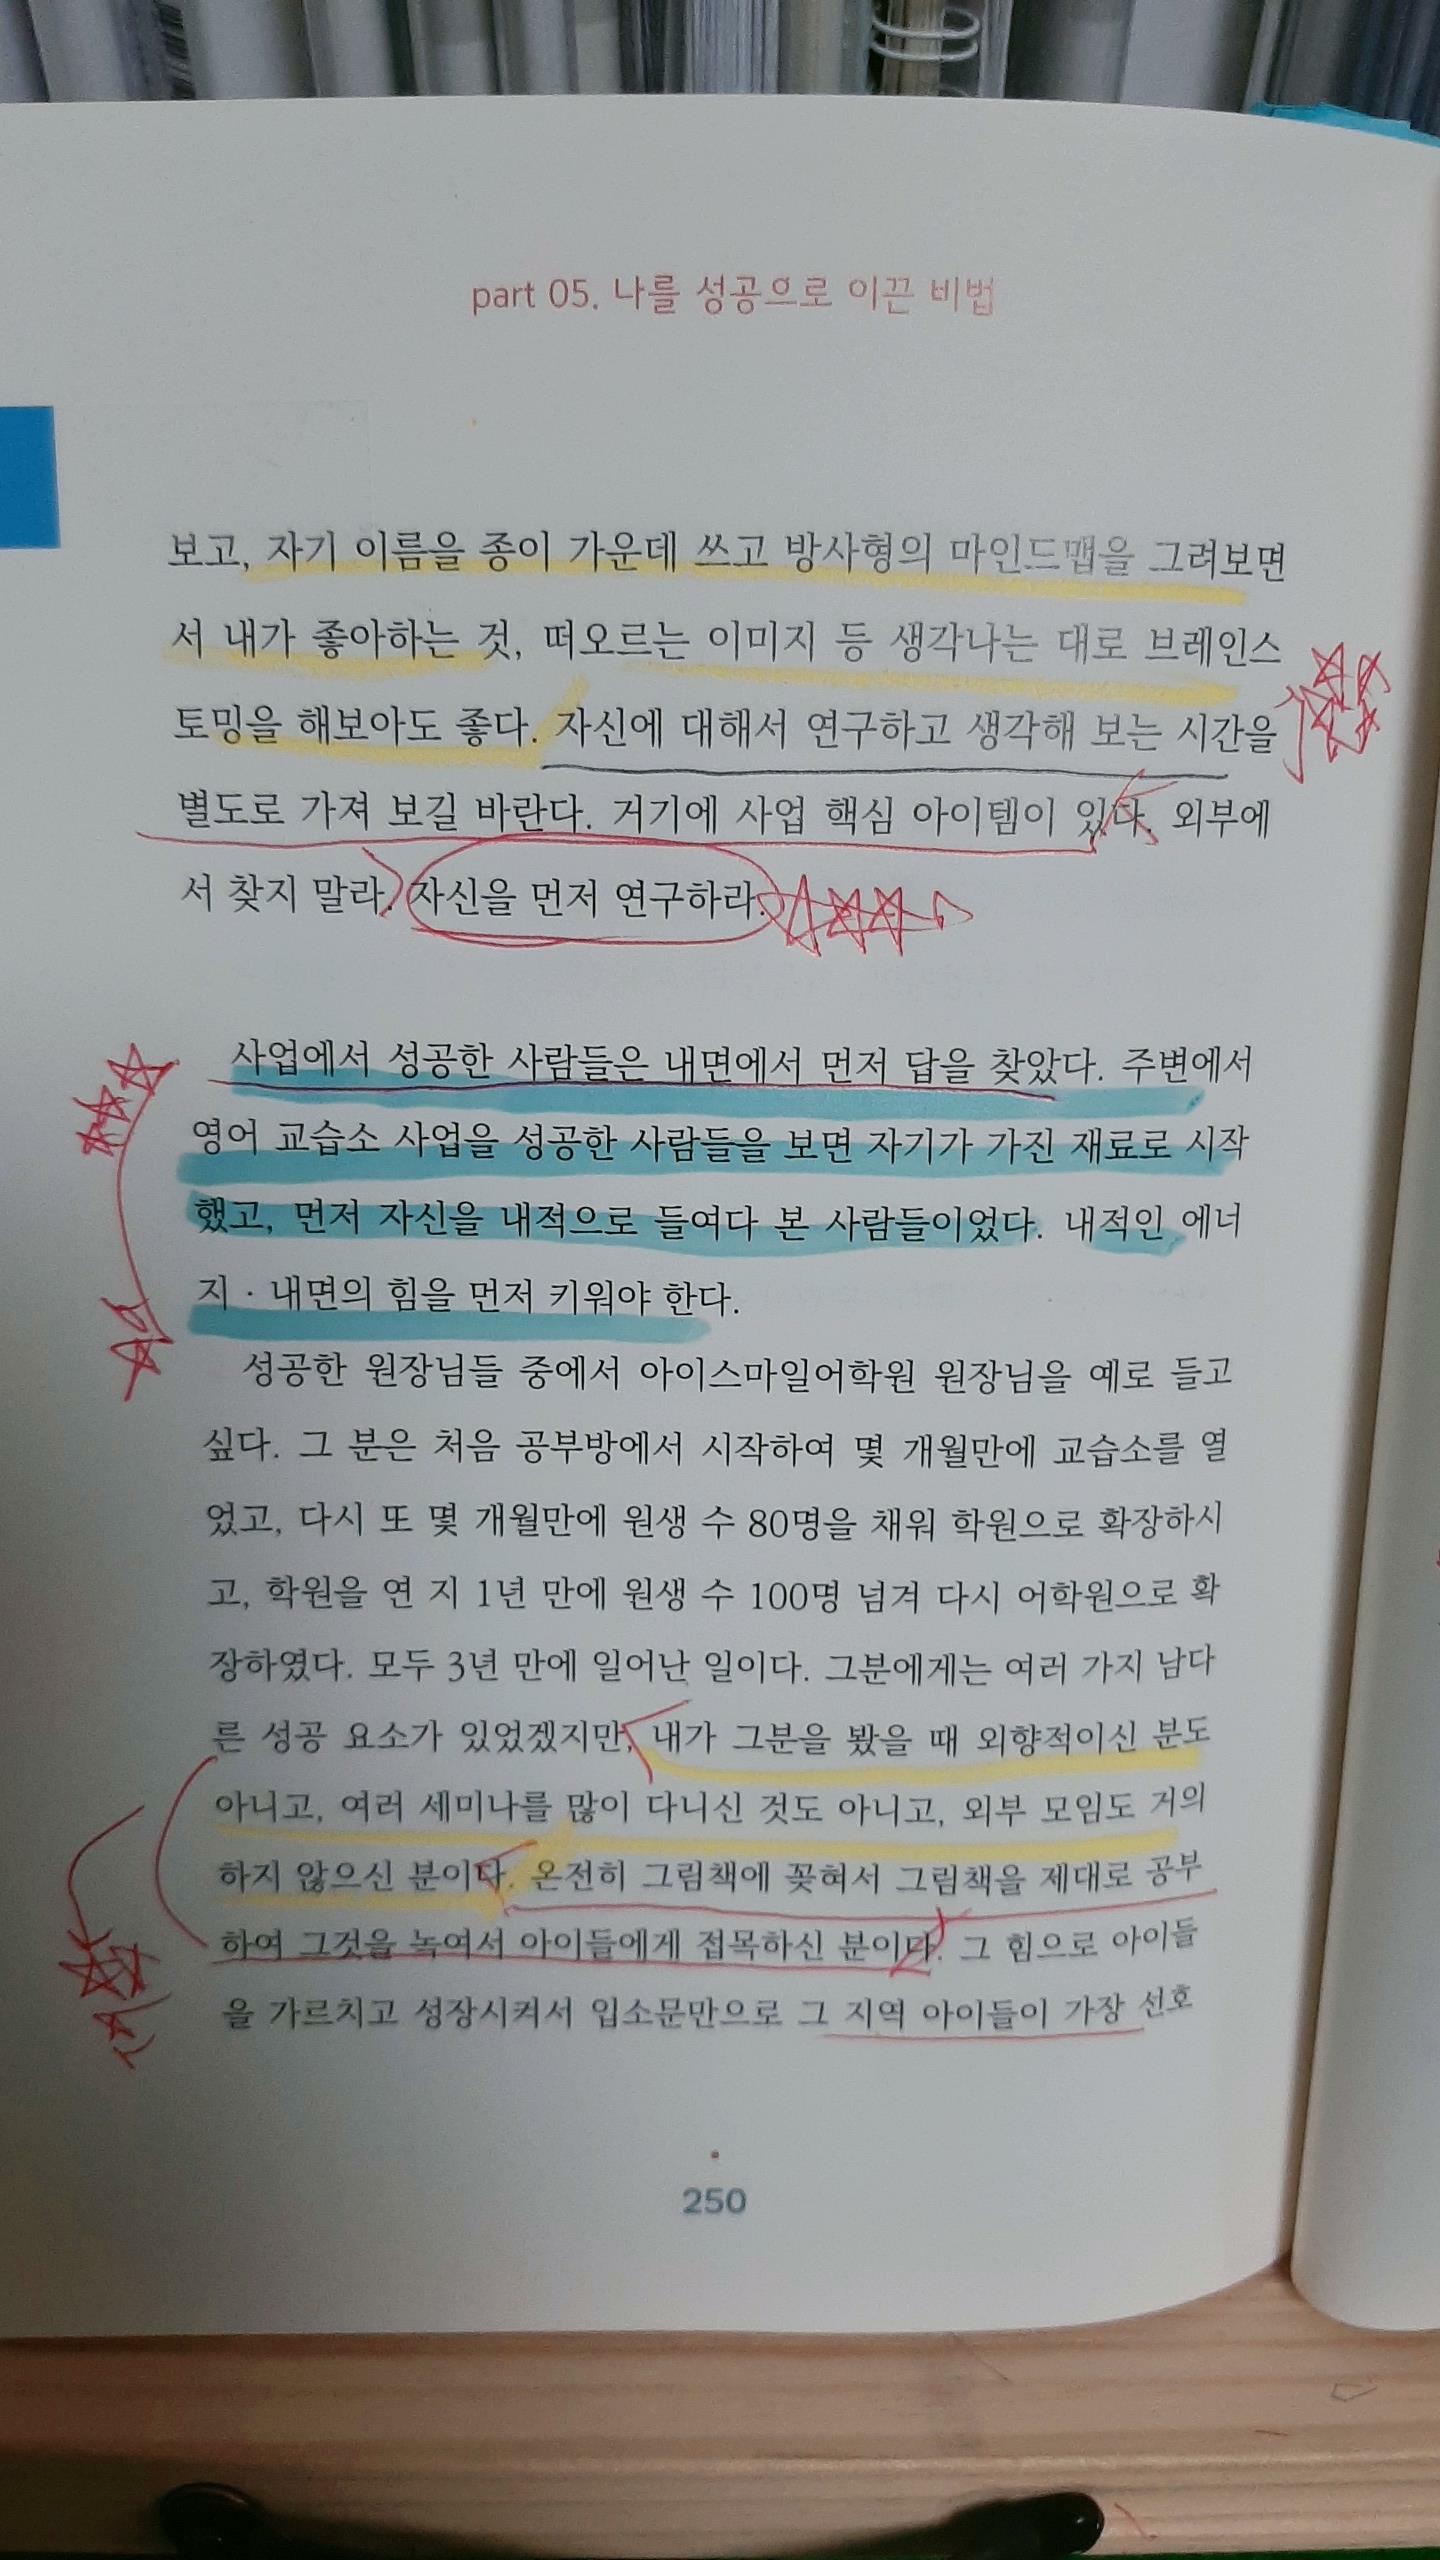 part 05. 나를 성공으로 이끈 비법
보고, 자기 이름을 종이 가운데 쓰고 방사형의 마인드맵을 그려보면
서 내가 좋아하는 것, 떠오르는 이미지 등 생각나는 대로 브레인스
토밍을 해보아도 좋다. 자신에 대해서 연구하고 생각해 보는 시간을
별도로 가져 보길 바란다. 거기에 사업 핵심 아이템이 있다. 외부에
서 찾지 말라. 자신을 먼저 연구하라.
사업에서 성공한 사람들은 내면에서 먼저 답을 찾았다. 주변에서
영어 교습소 사업을 성공한 사람들을 보면 자기가 가진 재료로 시작
했고, 먼저 자신을 내적으로 들여다 본 사람들이었다. 내적인 에너
지 · 내면의 힘을 먼저 키워야 한다.
성공한 원장님들 중에서 아이스마일어학원 원장님을 예로 들고
싶다. 그 분은 처음 공부방에서 시작하여 몇 개월만에 교습소를 열
었고, 다시 또 몇 개월만에 원생 수 80명을 채워 학원으로 확장하시
고, 학원을 연 지 1년 만에 원생 수 100명 넘겨 다시 어학원으로 확
장하였다. 모두 3년 만에 일어난 일이다. 그분에게는 여러 가지 남다
른 성공 요소가 있었겠지만, 내가 그분을 봤을 때 외향적이신 분도
아니고, 여러 세미나를 많이 다니신 것도 아니고, 외부 모임도 거의
하지 않으신 분이다. 온전히 그림책에 꽂혀서 그림책을 제대로 공부
하여 그것을 녹여서 아이들에게 접목하신 분이다. 그 힘으로 아이들
을 가르치고 성장시켜서 입소문만으로 그 지역 아이들이 가장 선호
250